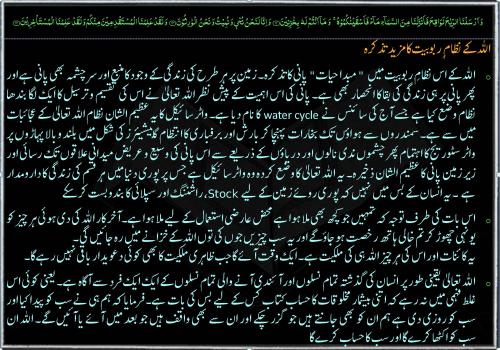 وَاَرْسَلْنَا الرِّيٰحَ لَوَاقِحَ فَاَنْزَلْنَا مِنَ السَّمَآءِ مَآءً فَاَسْقَيْنٰكُمُوْهُ ۚ وَمَآ اَنْتُمْ لَهٗ بِخٰزِنِيْنَ وَاِنَّا لَنَحْنُ نُحْيٖ وَنُمِيْتُ وَنَحْنُ الْوٰرِثُوْنَ وَلَقَدْ عَلِمْنَا الْمُسْتَقْدِمِيْنَ مِنْكُمْ وَلَقَدْ عَلِمْنَا الْمُسْتَاْخِرِيْنَ
اللہ کے نظامِ ربوبیت کا مزید تذکرہ
اللہ کے اس نظامِ ربوبیت میں "مبداحیات" پانی کا تذکرہ۔ زمین پر ہر طرح کی زندگی کے وجود کا منبع اور سرچشمہ بھی پانی ہے اور
پھر پانی پر ہی زندگی کی بقا کا انحصار بھی ہے۔ پانی کی اس اہمیت کے پیشِ نظر اللہ تعالٰی نے اس کی تقسیم و ترسیل کا ایک لگا بندھا
نظام وضع کیا ہے جسے آج کی سائنس نے water cycle کا نام دیا ہے۔ واٹر سائیکل کا یہ عظیم الشان نظام اللہ تعالٰی کے عجائبات
میں سے ہے۔ سمندروں سے ہواؤں تک بخارات پہنچا کر بارش اور برفباری کا انتظام، گلیشیئرز کی شکل میں بلند و بالا پہاڑوں پر
واٹر سٹوریج کا اہتمام، پھر چشموں، ندی نالوں اور دریاؤں کے ذریعے سے اس پانی کی وسیع و عریض میدانی علاقوں تک رسائی اور
زیرِ زمین پانی کا عظیم الشان ذخیرہ۔ یہ اللہ تعالٰی کا وضع کردہ وہ واٹر سائیکل ہے جس پر پوری دنیا میں ہر قسم کی زندگی کا دار و مدار
ہے۔ یہ انسان کے بس میں نہیں کہ پوری روئے زمین کے لیے Stock، راشننگ اور سپلائی کا بندوبست کر سکے
اس بات کی طرف توجہ کہ تمہیں جو کچھ بھی ملا ہوا ہے محض عارضی استعمال کے لیے ملا ہوا ہے۔ آخرکار اللہ کی دی ہوئی ہر چیز کو
یونہی چھوڑ کر تم خالی ہاتھ رخصت ہو جاؤ گے اور یہ سب چیزیں جوں کی توں اللہ کے خزانے میں رہ جائیں گی۔
یہ کائنات اور اس کی ہر چیز اللہ ہی کی ملکیت ہے۔ ایک وقت آئے گا جب ظاہری ملکیت کا بھی کوئی دعویدار باقی نہیں رہے گا۔
اللہ تعالٰی یقینی طور پر انسان کی گذشتہ تمام نسلوں اور آئندی آنے والی تمام نسلوں کے ایک ایک فرد سے آگاہ ہے۔ یعنی کوئی اس
غلط فہمی میں نہ رہے کہ اتنی بیشمار مخلوقات کا حساب کتاب کس کے لیے بس کی بات ہے۔ فرمایا کہ ہم ہی نے سب کو پیدا کیا اور
سب کو روزی دی ہے ہم ان کو بھی جانتے ہیں جو گزر چکے اور ان سے بھی واقف ہیں جو بعد میں آئے یا آئیں گے۔ اللہ ان
سب کو اکٹھا کرے گا اور سب کا حساب کرے گا